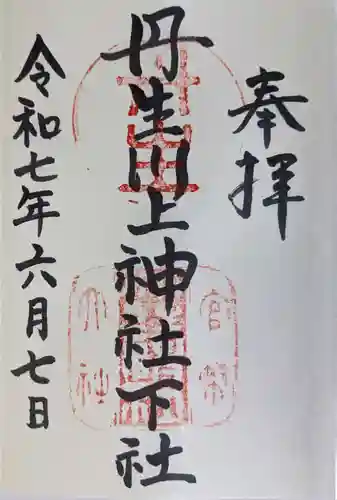 奉拝
丹生川上神社下社
令和七年六月七日